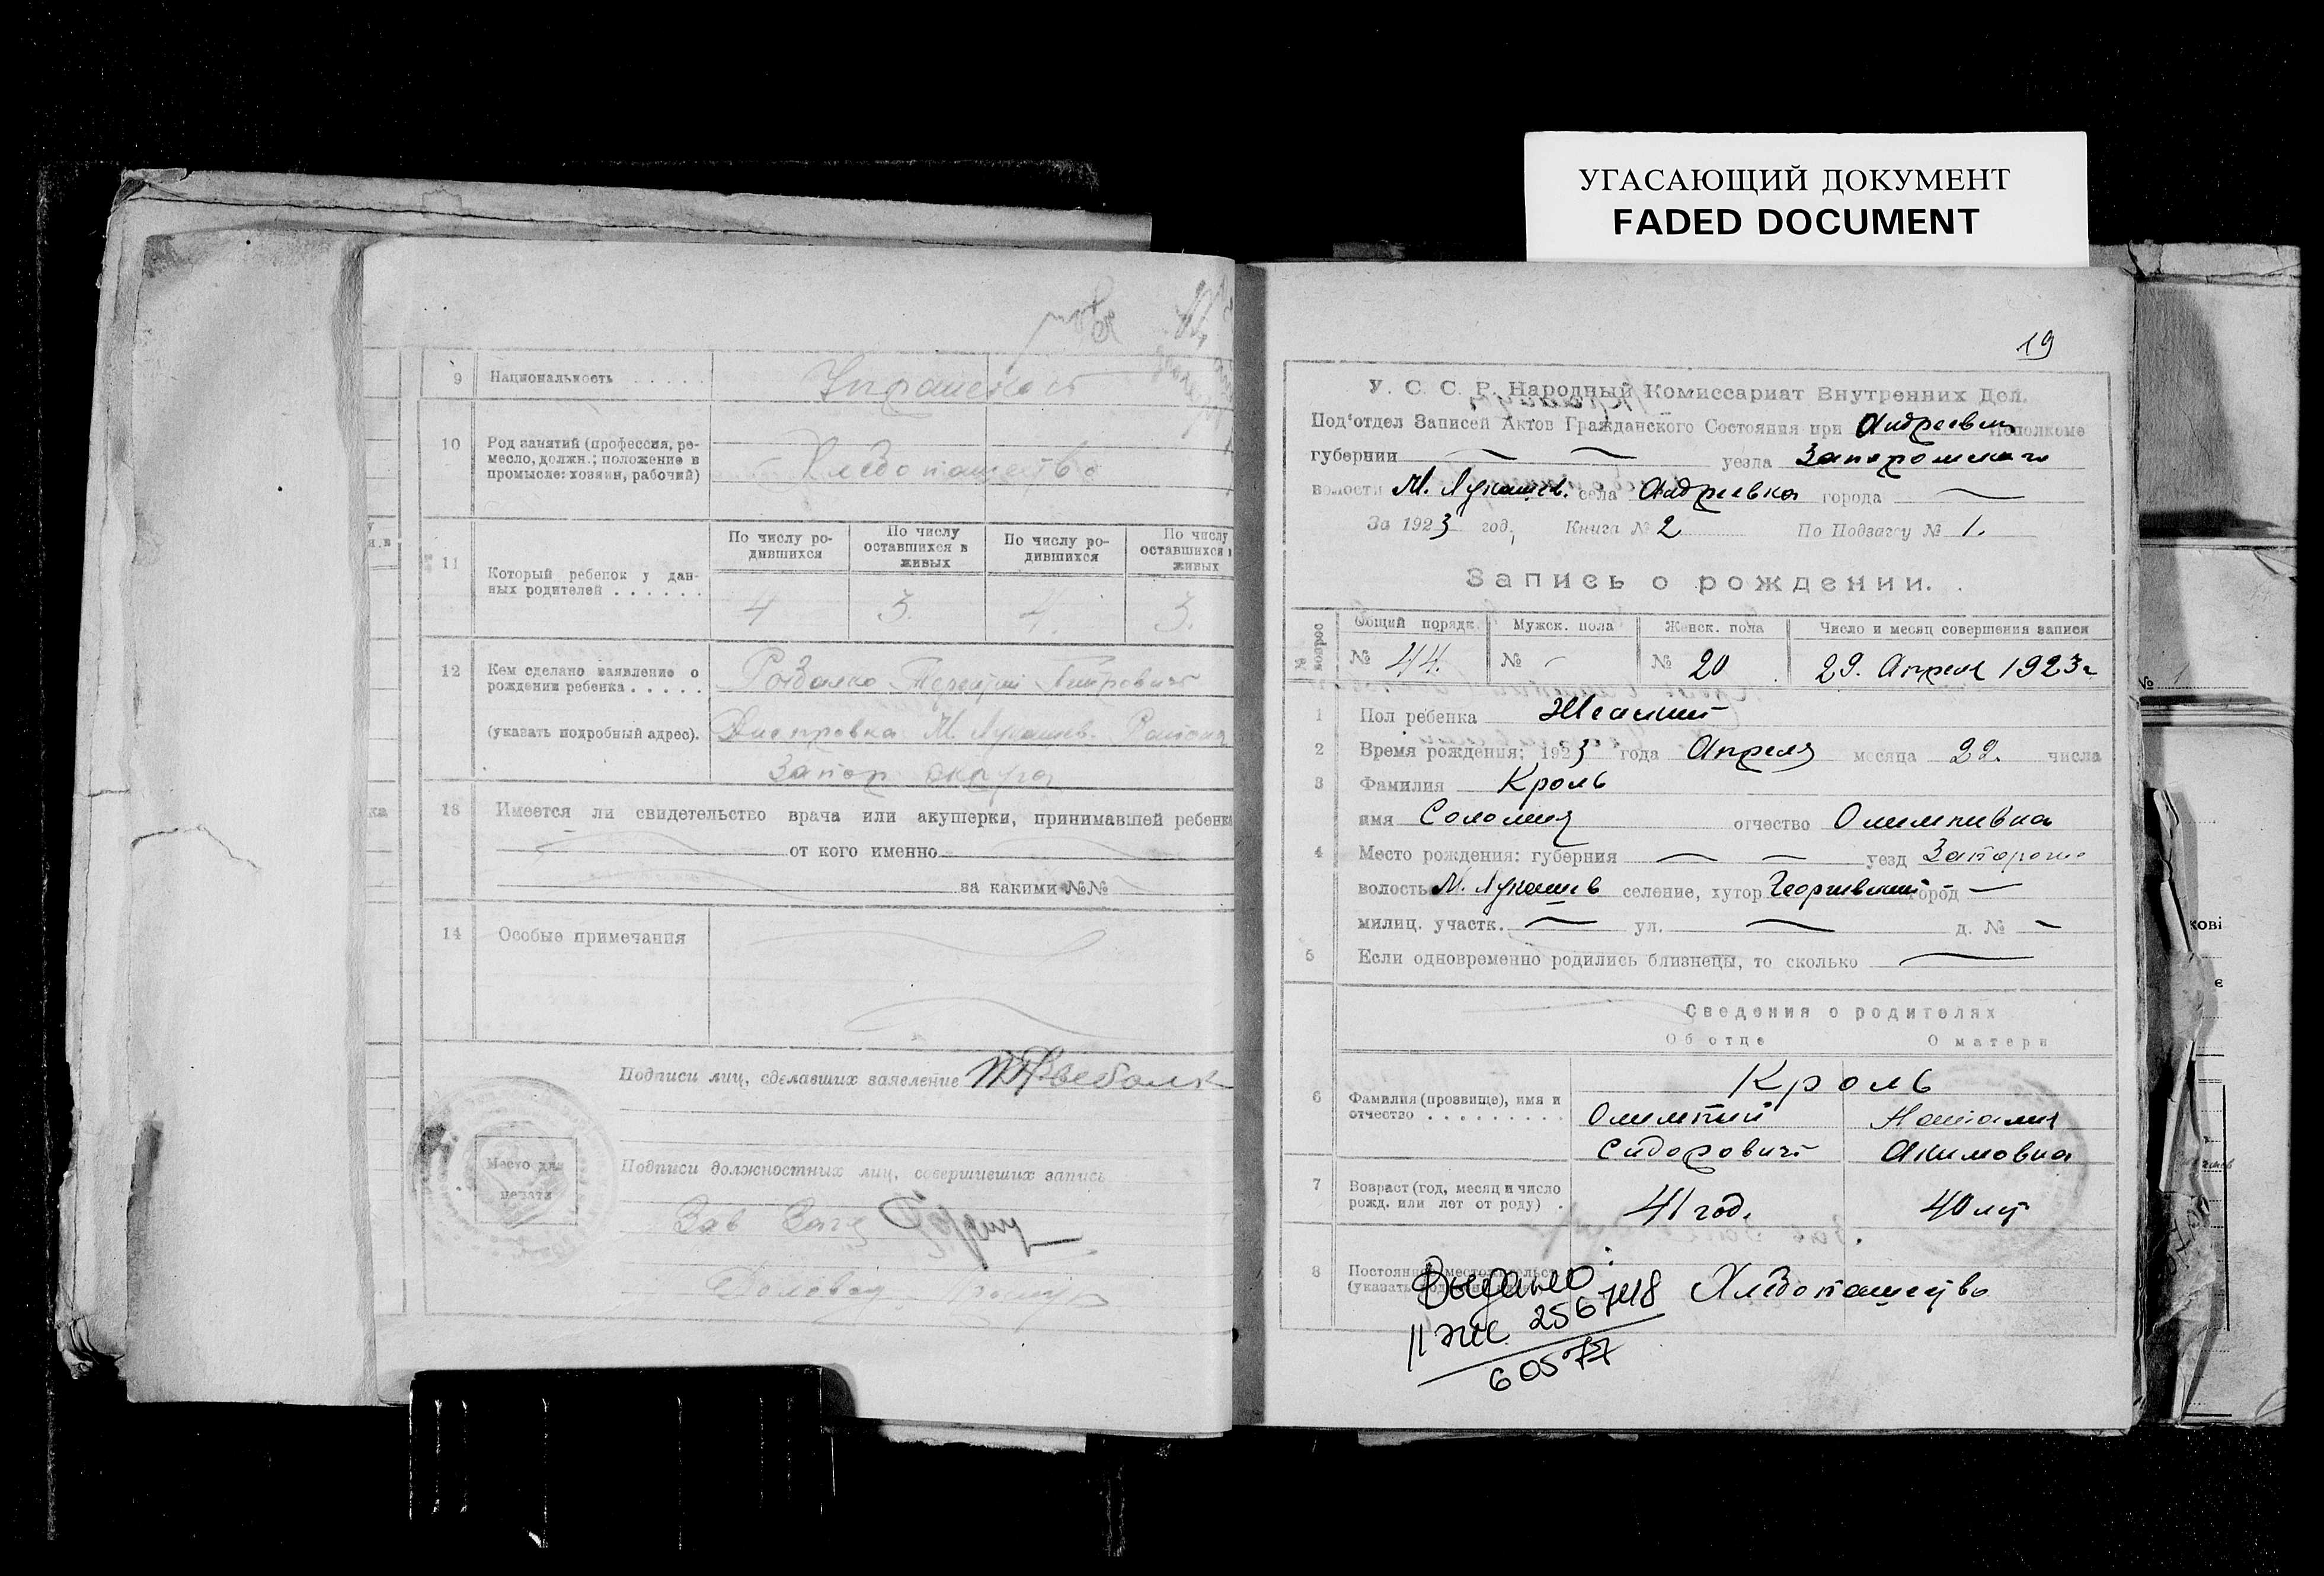 УГАСАЮЩИЙ ДОКУМЕНТ
FADED DOCUMENT
9 Национальность . . . . .
10 Род занятий (профессия, ре-
месло, должн.; положение в
промысле: хозяин, рабочий)
Хлебопашество
11 Который ребенок у дан-
ных родителей . . . . . .
По числу ро-
дившихся
По числу
оставшихся в
живых
По числу ро-
дившихся
По числу
оставшихся
живых
4 3. 4. 3.
12 Кем сделано заявление о
рождении ребенка . . . . .
(указать подробный адрес).
Днепровка М. Лукашев. Района
Запор округа
13 Имеется ли свидетельство врача или акушерки, принимавшей ребенка
от кого именно
за какими №№
14 Особые примечания
Подписи лиц, сделавших заявление
Место для
печати
Подписи должностных лиц, совершивших запись
Зав Загс
19
У. С. С. Р. Народный Комиссариат Внутренних Дел.
Под'отдел Записей Актов Гражданского Состояния при Андреевск Исполкоме
губернии — — уезда Запорожского
волости М. Лукашев. села Андреевка города —
За 1923 год, Книга № 2 По Подзагсу № 1.
Запись о рождении.
№ вопрос Общий порядк. Мужск. пола Женск. пола Число и месяц совершения записи
№ 44. № - № 20 29. Апреля 1923 г
1 Пол ребенка Женский
2 Время рождения: 1923 года Апреля месяца 22. числа
3 Фамилия Кроль
имя Соломия отчество Олимпивна
4 Место рождения: губерния — — уезд Запорожс
волость М. Лукашев селение, хутор Георгиевский город —
милиц. участк. — ул. — д. № -
5 Если одновременно родились близнецы, то сколько —
Сведения о родителях
Об отце О матери
Кроль
6 Фамилия (прозвище), имя и
отчество . . . . . . . . .
Олимпий Наталия
Сидорович Акимовна
7 Возраст (год, месяц и число
рожд. или лет от роду) .
41 год. 40 лет
8 Постоянное местожительст
(указать
Хлебопашество
Выдано
II ЖС 256748
60577